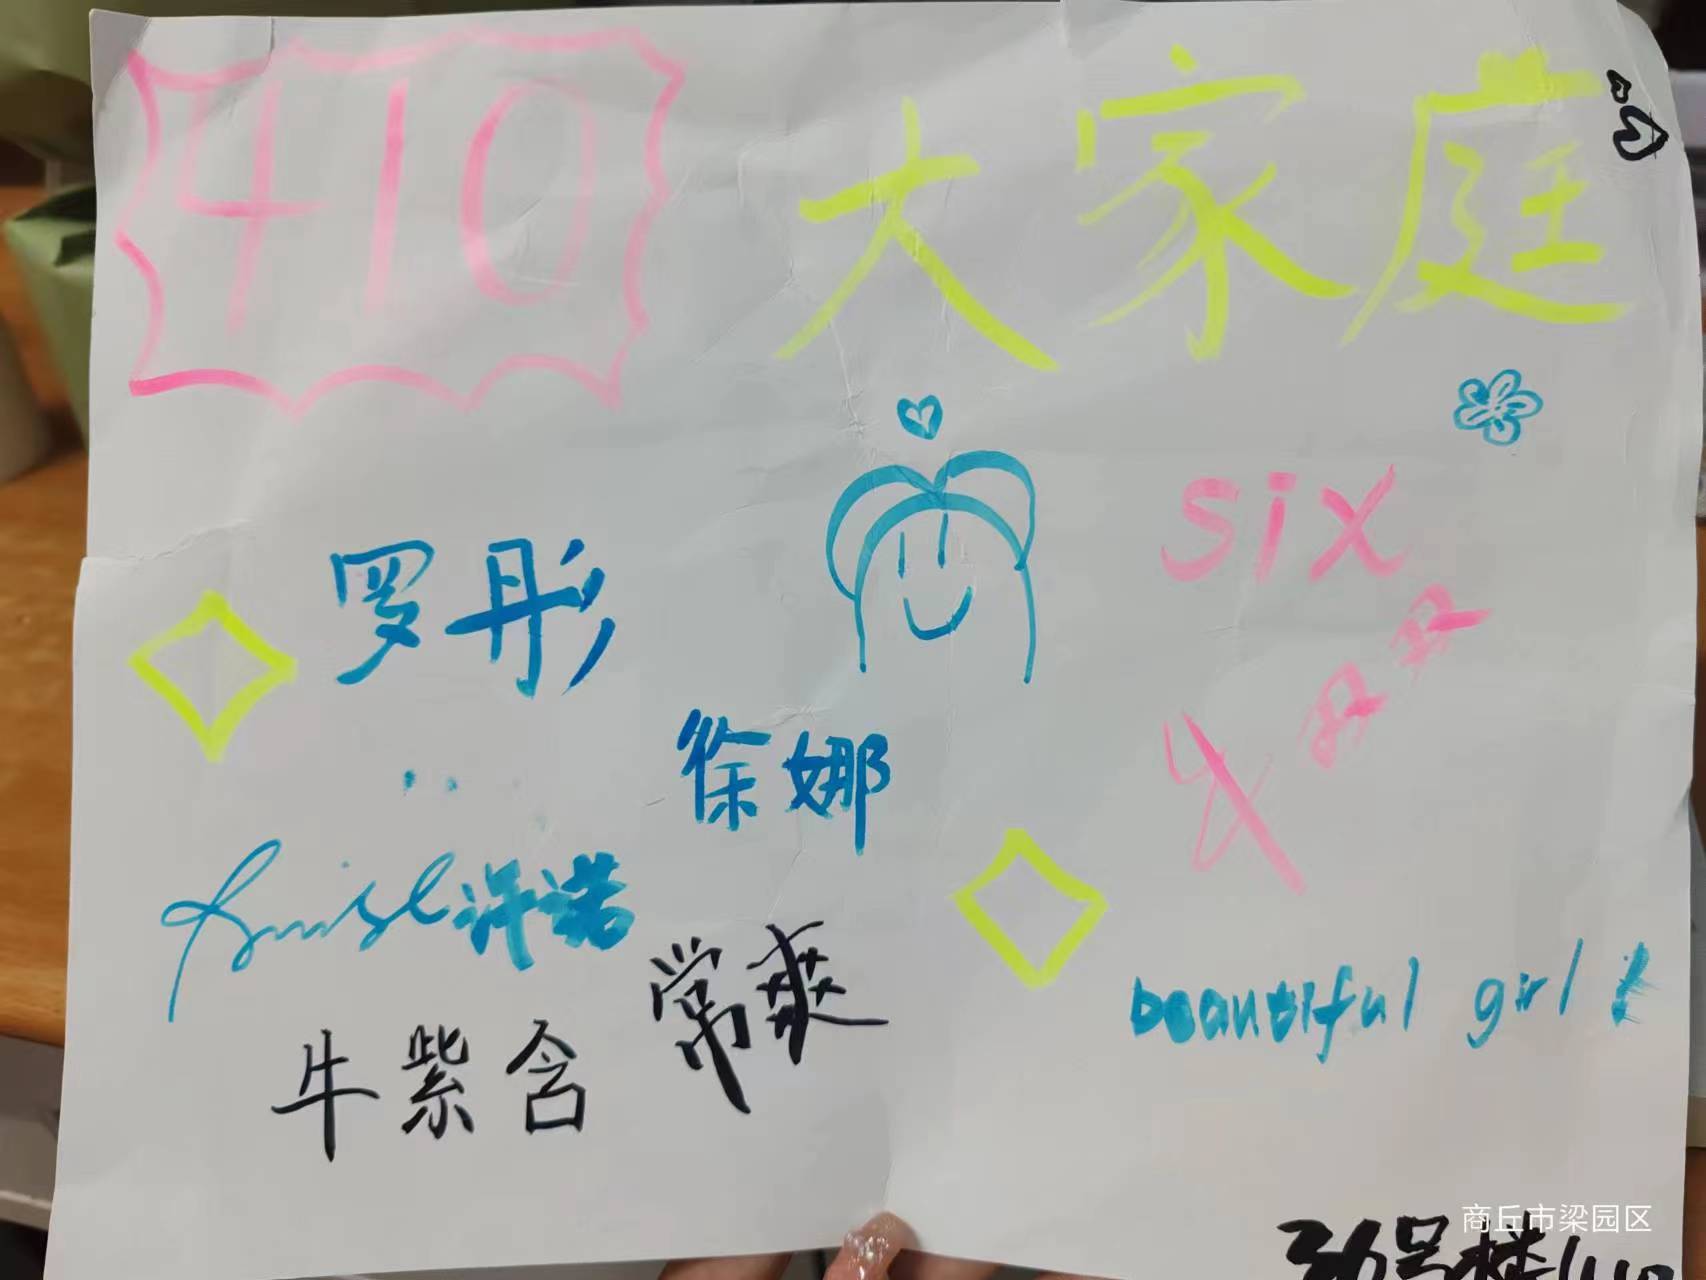 410 大家庭
six
罗彤
徐娜
许诺
常爽
beautiful girl
牛紫含
商丘市梁园区
36号楼